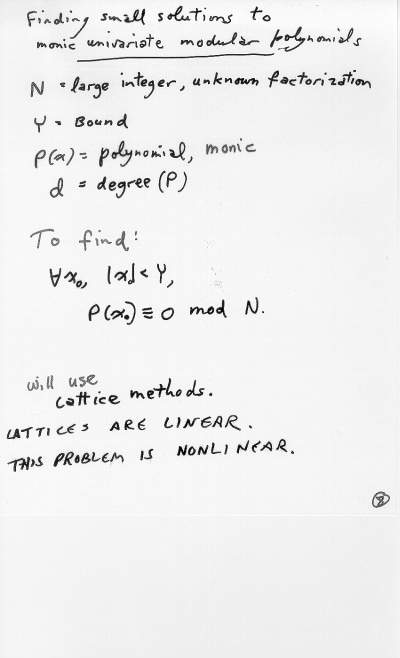 Finding small solutions to
monic univariate modular polynomials
N = large integer, unknown factorization
Y = Bound
P(x) = polynomial, monic
d = degree (P)
To find:
∀x₀, |x₀| < Y,
P(x₀) ≡ 0 mod N.
will use
Lattice methods.
LATTICES ARE LINEAR.
THIS PROBLEM IS NONLINEAR.